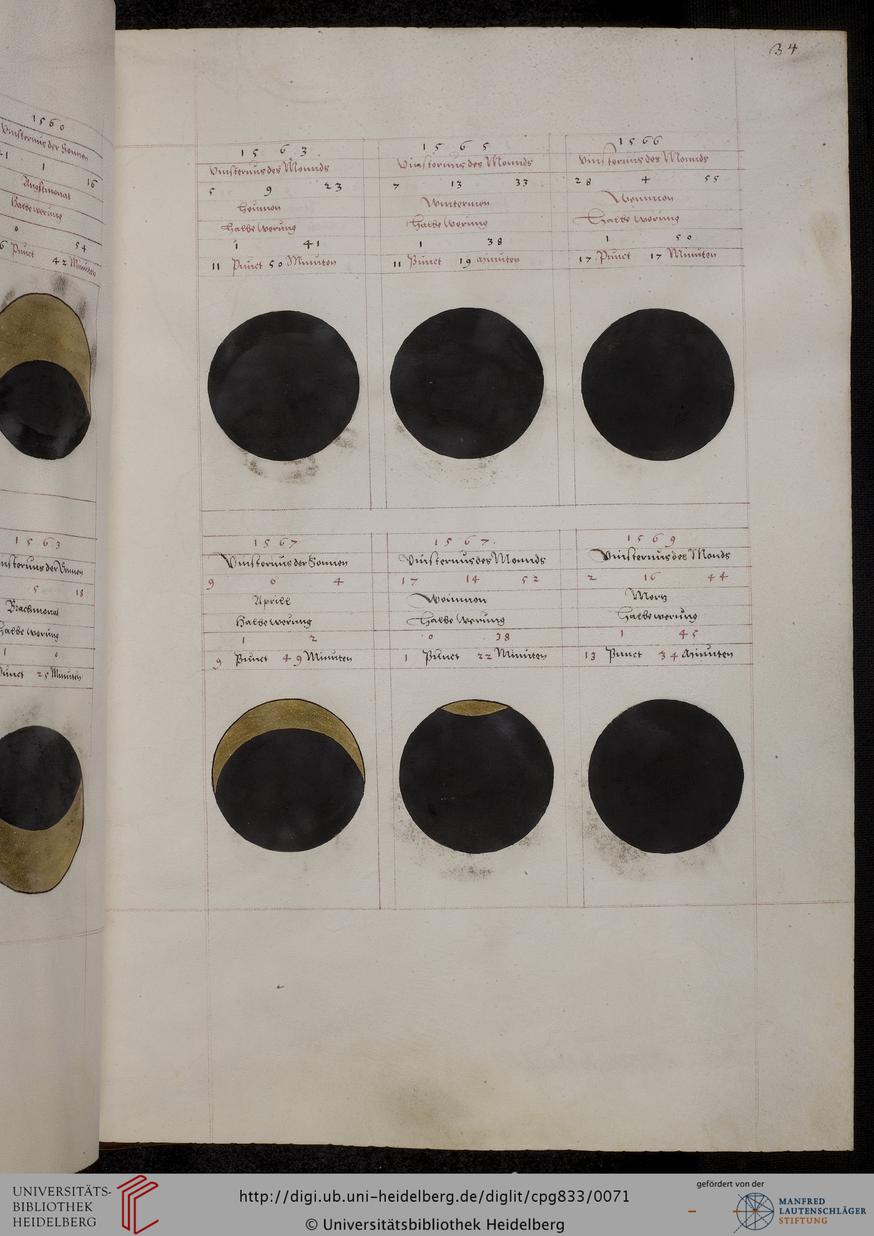 34
1560
1
16
Augstmonat
Halbe werung
0 54
6 Punct 42 Minuten
1563
5 18
Brachmonat
Halbe werung
1 0
Punct 25 Minuten
1563
Vinsternus des Monnds
5 9 23
Heumon
Halbe werung
1 41
11 Punct 50 Minuten
1565
Vinsternus des Monnds
7 13 33
Wintermon
Halbe werung
1 38
11 Punct 19 Minuten
1566
Vinsternus des Monnds
28 4 55
Weinmon
Halbe werung
1 50
17 Punct 17 Minuten
1567
Vinsternus der Sonnen
9 0 4
Aprill
Halbe werung
1 2
9 Punct 49 Minuten
1567.
Vinsternus des Monnds
17 14 52
Weinmon
Halbe werung
0 38
1 Punct 22 Minuten
1569
Vinsternus des Monds
2 16 44
Mertz
Halbe werung
1 45
13 Punct 34 Minuten
UNIVERSITÄTS-
BIBLIOTHEK
HEIDELBERG
http://digi.ub.uni-heidelberg.de/diglit/cpg833/0071
© Universitätsbibliothek Heidelberg
gefördert von der
MANFRED
LAUTENSCHLÄGER
STIFTUNG